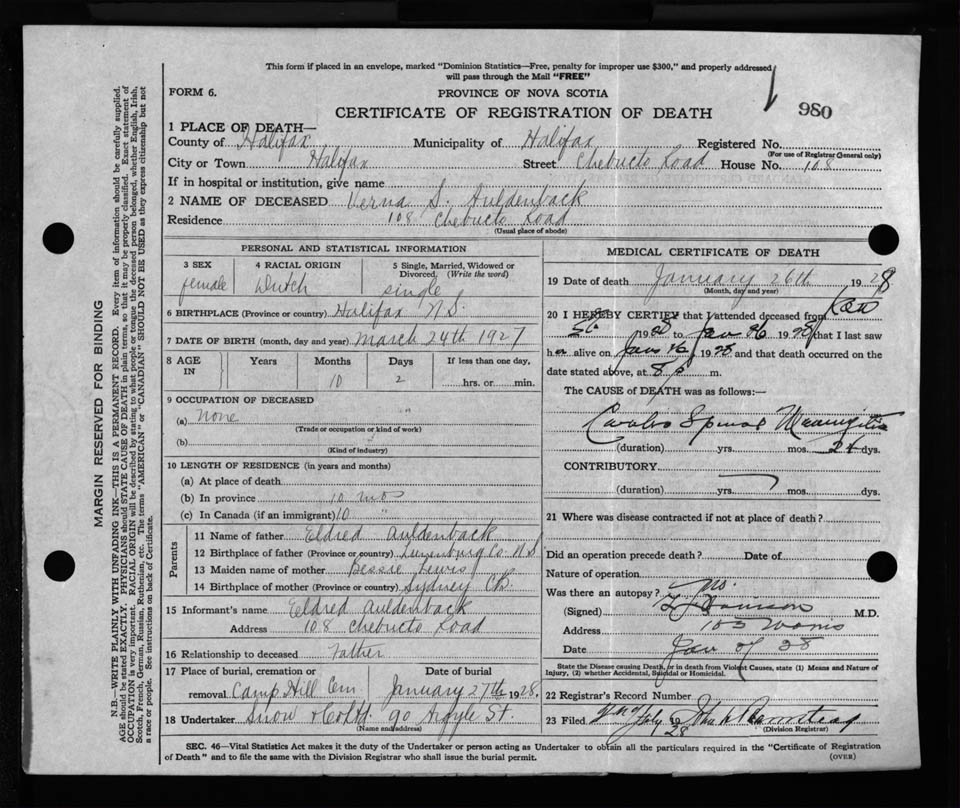 This form if placed in an envelope, marked "Dominion Statistics—Free, penalty for improper use $300," and properly addressed
will pass through the Mail "FREE"
FORM 6.
PROVINCE OF NOVA SCOTIA
980
CERTIFICATE OF REGISTRATION OF DEATH
1 PLACE OF DEATH—
County of Halifax Municipality of Halifax Registered No.
(For use of Registrar General only)
City or Town Halifax Street Chebucto Road House No. 108
If in hospital or institution, give name
2 NAME OF DECEASED Verna S. Auldenback
Residence 108 Chebucto Road
(Usual place of abode)
PERSONAL AND STATISTICAL INFORMATION
3 SEX 4 RACIAL ORIGIN 5 Single, Married, Widowed or
Divorced. (Write the word)
female Dutch single
6 BIRTHPLACE (Province or country) Halifax N.S.
7 DATE OF BIRTH (month, day and year) March 24th 1927
8 AGE IN Years Months Days If less than one day,
10 2 hrs. or min.
9 OCCUPATION OF DECEASED
(a) none
(Trade or occupation or kind of work)
(b)
(Kind of industry)
10 LENGTH OF RESIDENCE (in years and months)
(a) At place of death
(b) In province 10 mos
(c) In Canada (if an immigrant) 10 "
Parents
11 Name of father Eldred Auldenback
12 Birthplace of father (Province or country) Lunenburg Co N.S
13 Maiden name of mother Bessie Lewis
14 Birthplace of mother (Province or country) Sydney C.B.
15 Informant's name Eldred Auldenback
Address 108 Chebucto Road
16 Relationship to deceased Father
17 Place of burial, cremation or Date of burial
removal Camp Hill Cem January 27th 1928
18 Undertaker Snow & Co Ltd. 90 Argyle St.
(Name and address)
MEDICAL CERTIFICATE OF DEATH
19 Date of death January 26th 1928
(Month, day and year)
20 I HEREBY CERTIFY that I attended deceased from Jan
1928 to Jan 26 1928 that I last saw
her alive on Jan 26 1928 and that death occurred on
date stated above, at 8 p m.
The CAUSE of DEATH was as follows:—
Cerebro Spinal Meningitis
(duration) yrs. mos. 21 dys.
CONTRIBUTORY
(duration) yrs. mos. dys.
21 Where was disease contracted if not at place of death?
Did an operation precede death? Date of
Nature of operation
Was there an autopsy? No.
(Signed) M.D.
Address
Date Jan 28
State the Disease causing Death, or in death from Violent Causes, state (1) Means and Nature of
Injury, (2) whether Accidental, Suicidal or Homicidal.
22 Registrar's Record Number
23 Filed 1928
(Division Registrar)
SEC. 46—Vital Statistics Act makes it the duty of the Undertaker or person acting as Undertaker to obtain all the particulars required in the "Certificate of Registration
of Death" and to file the same with the Division Registrar who shall issue the burial permit.
(OVER)
MARGIN RESERVED FOR BINDING
N.B.—WRITE PLAINLY WITH UNFADING INK—THIS IS A PERMANENT RECORD. Every item of information should be carefully supplied.
AGE should be stated EXACTLY. PHYSICIANS should STATE CAUSE OF DEATH in plain terms, so that it may be properly classified. Exact statement of
OCCUPATION is very important. RACIAL ORIGIN will be described by stating to what people or tongue the deceased person belonged, whether English, Irish,
Scotch, French, German, Russian, Ruthenian, etc. The terms "AMERICAN" or "CANADIAN" SHOULD NOT BE USED as they express citizenship but not
a race or people. See instructions on back of Certificate.